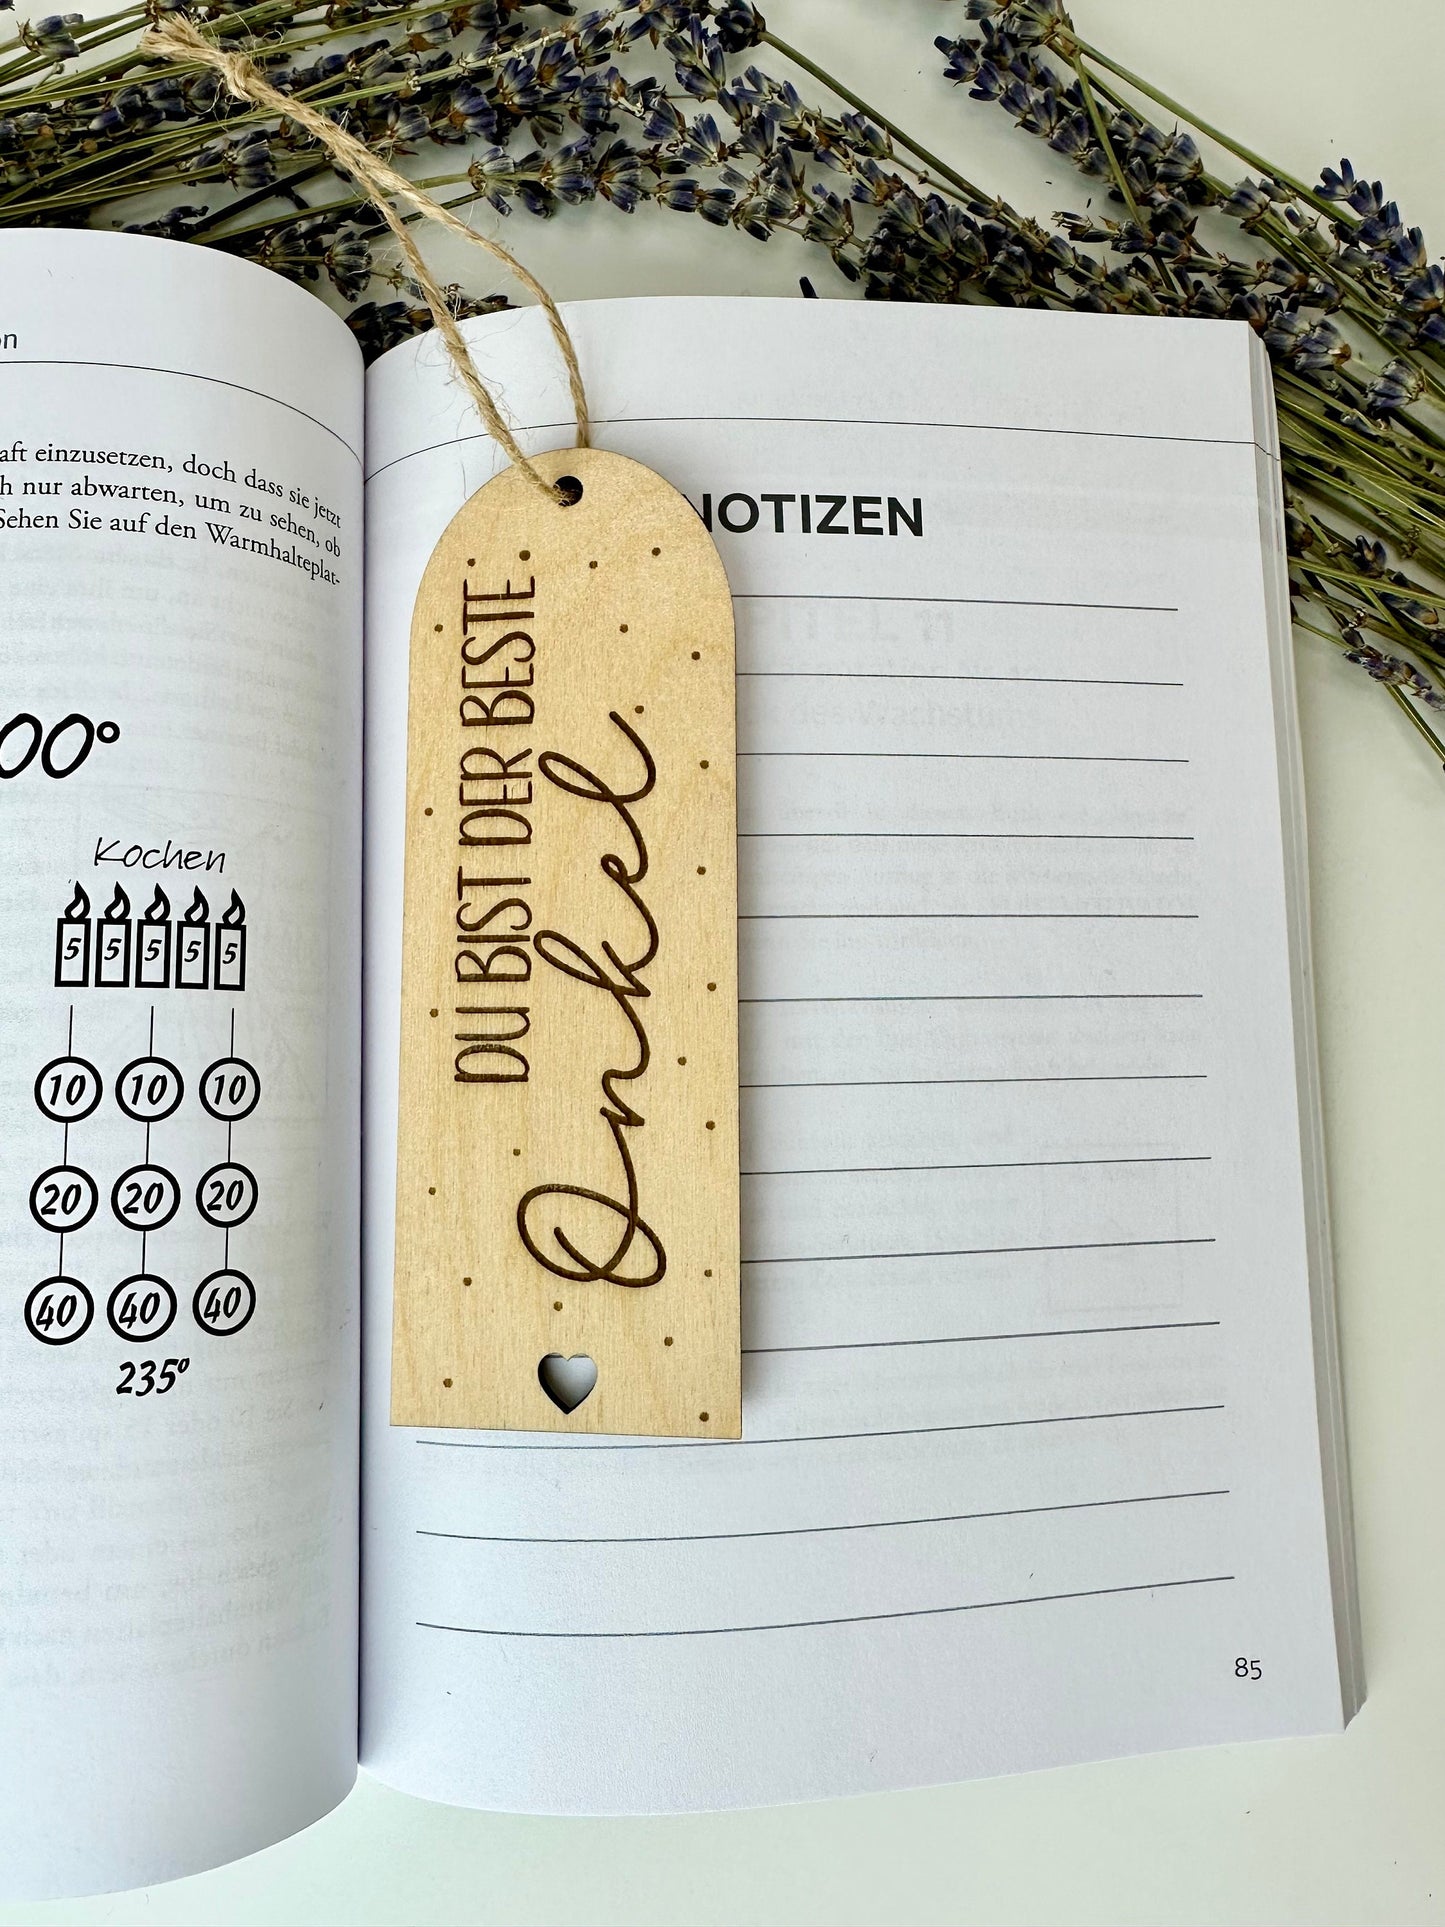 on
aft einzusetzen, doch dass sie jetzt
h nur abwarten, um zu sehen, ob
Sehen Sie auf den Warmhalteplat-
00°
Kochen
5 5 5 5 5
10 10 10
20 20 20
40 40 40
235°
DU BIST DER BESTE
Onkel
NOTIZEN
85